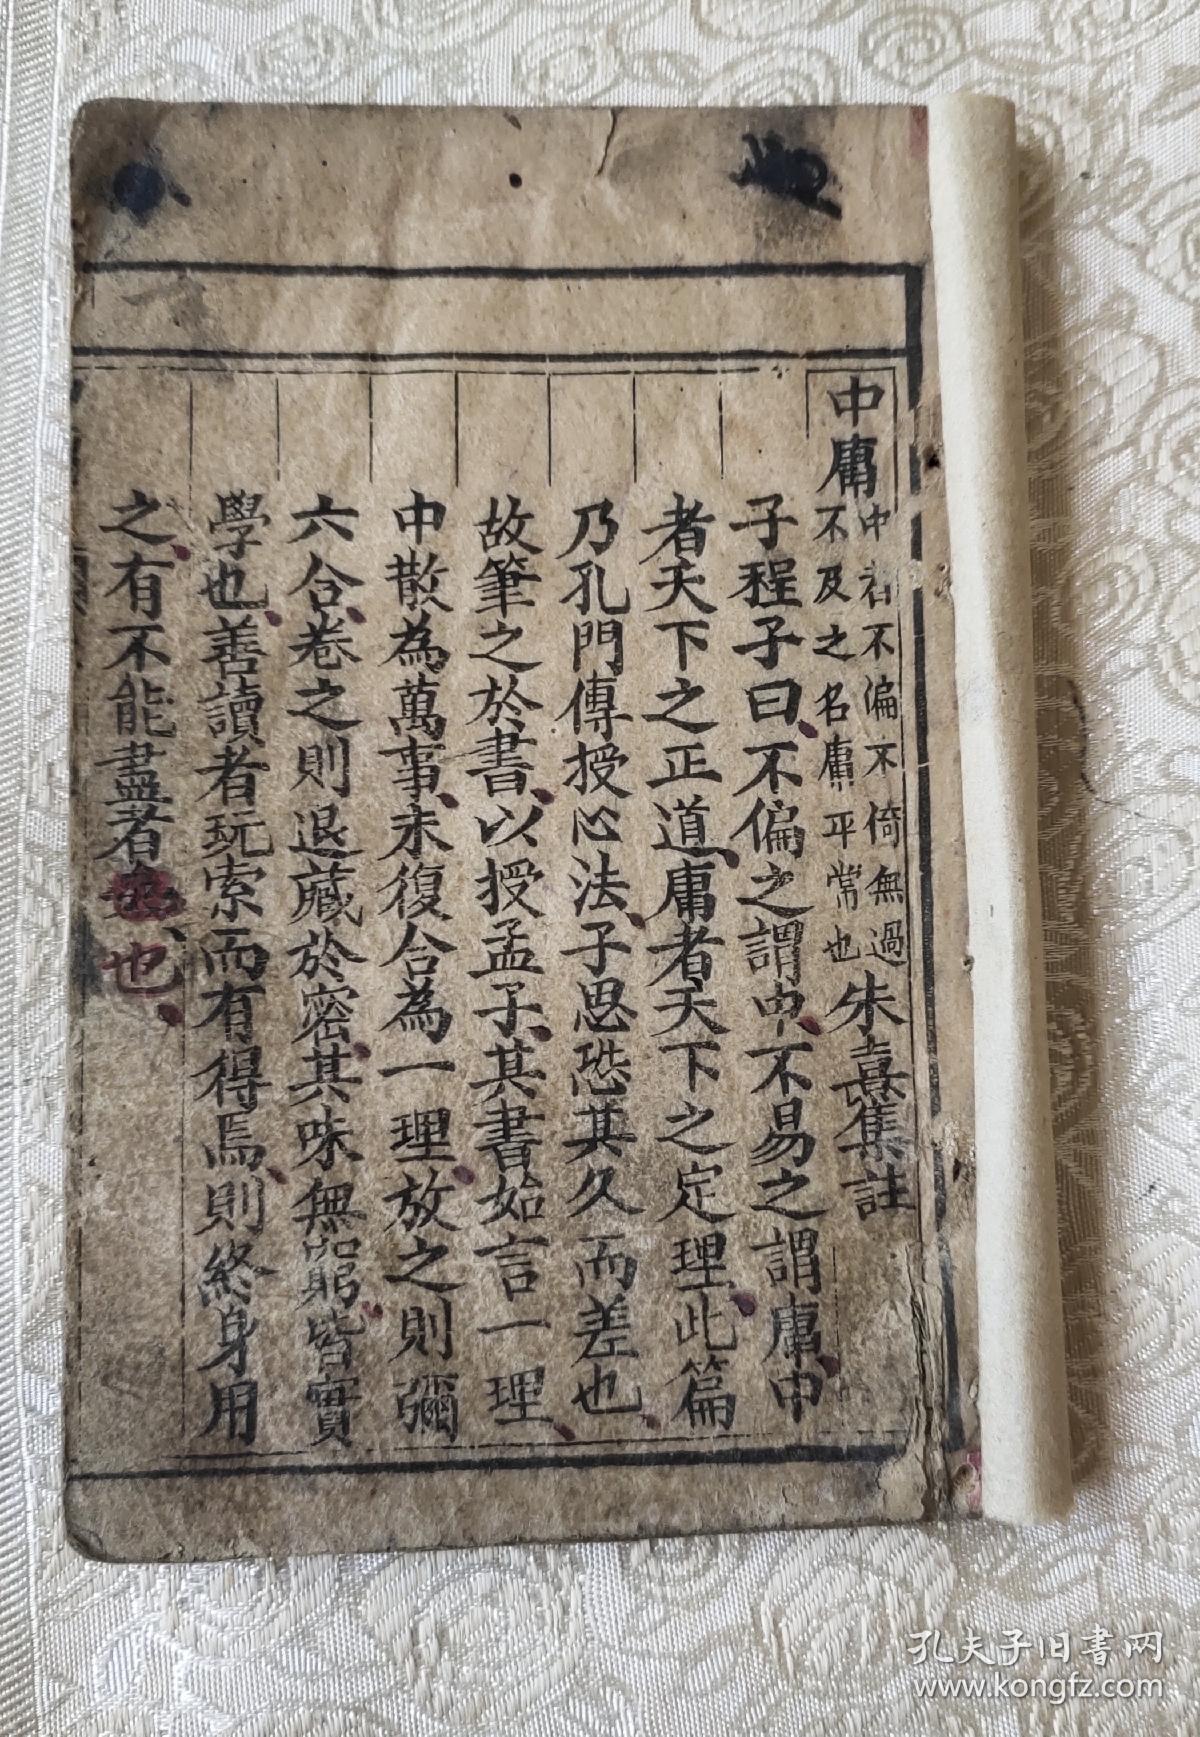 中庸 中者不偏不倚無過
不及之名庸平常也 朱熹集註
子程子曰、不偏之謂中、不易之謂庸、中
者天下之正道、庸者天下之定理、此篇
乃孔門傳授心法、子思恐其久而差也、
故筆之於書、以授孟子、其書始言一理、
中散為萬事、末復合為一理、放之則彌
六合、卷之則退藏於密、其味無窮、皆實
學也、善讀者玩索而有得焉、則終身用
之、有不能盡者也、
孔夫子旧书网
www.kongfz.com